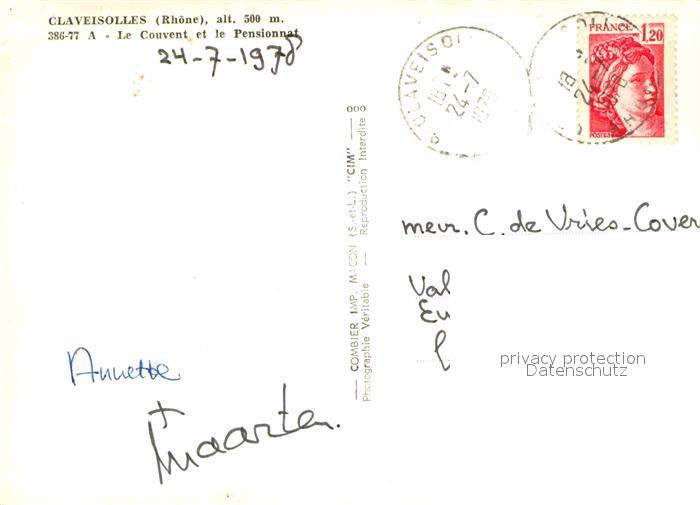 CLAVEISOLLES (Rhône), alt. 500 m.
386-77 A - Le Couvent et le Pensionnat
24-7-1978
CLAVEISOL
18
24-7
1978
FRANCE 1,20
POSTES
18
24-7
ooo
COMBIER IMP. MACON (S.-et-L.) "CIM"
Photographie Véritable — Reproduction Interdite
meur. C. de Vries-Cover
Val
Eu
privacy protection
Datenschutz
Annette
+
Maarten.